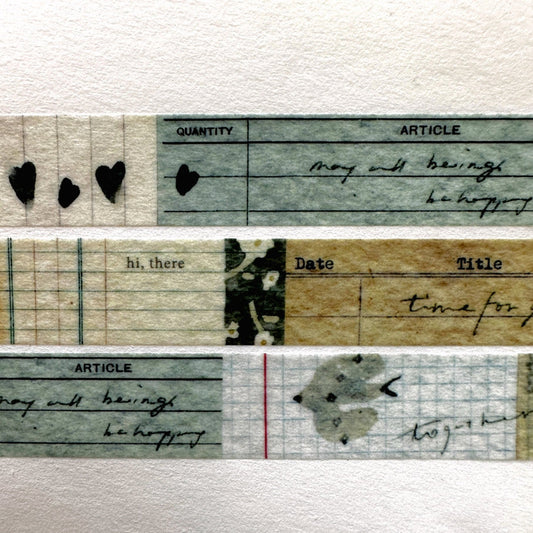 QUANTITY ARTICLE
may all beings
be happy
hi, there
Date Title
time for
ARTICLE
may all beings
be happy
together